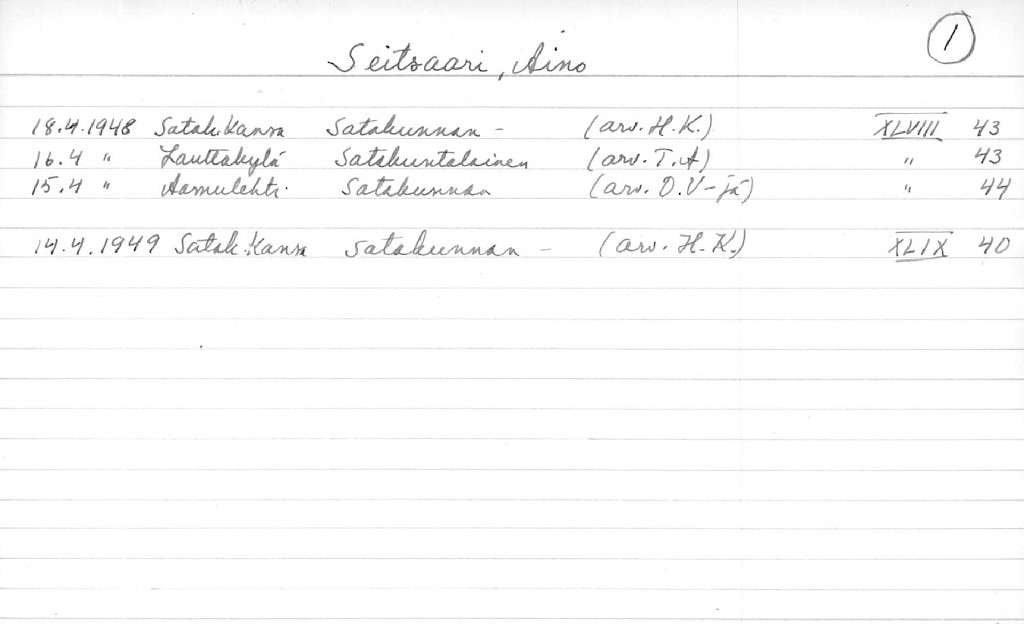 1
Seitsaari, Aino
18.4.1948 Satak.Kansa Satakunnan - (arv. H.K.) XLVIII 43
16.4 " Lauttakylä Satakuntalainen (arv. T.A) " 43
15.4 " Aamulehti. Satakunnan (arv. O.V-jä) " 44
14.4.1949 Satak.Kansa Satakunnan - (arv. H.K.) XLIX 40